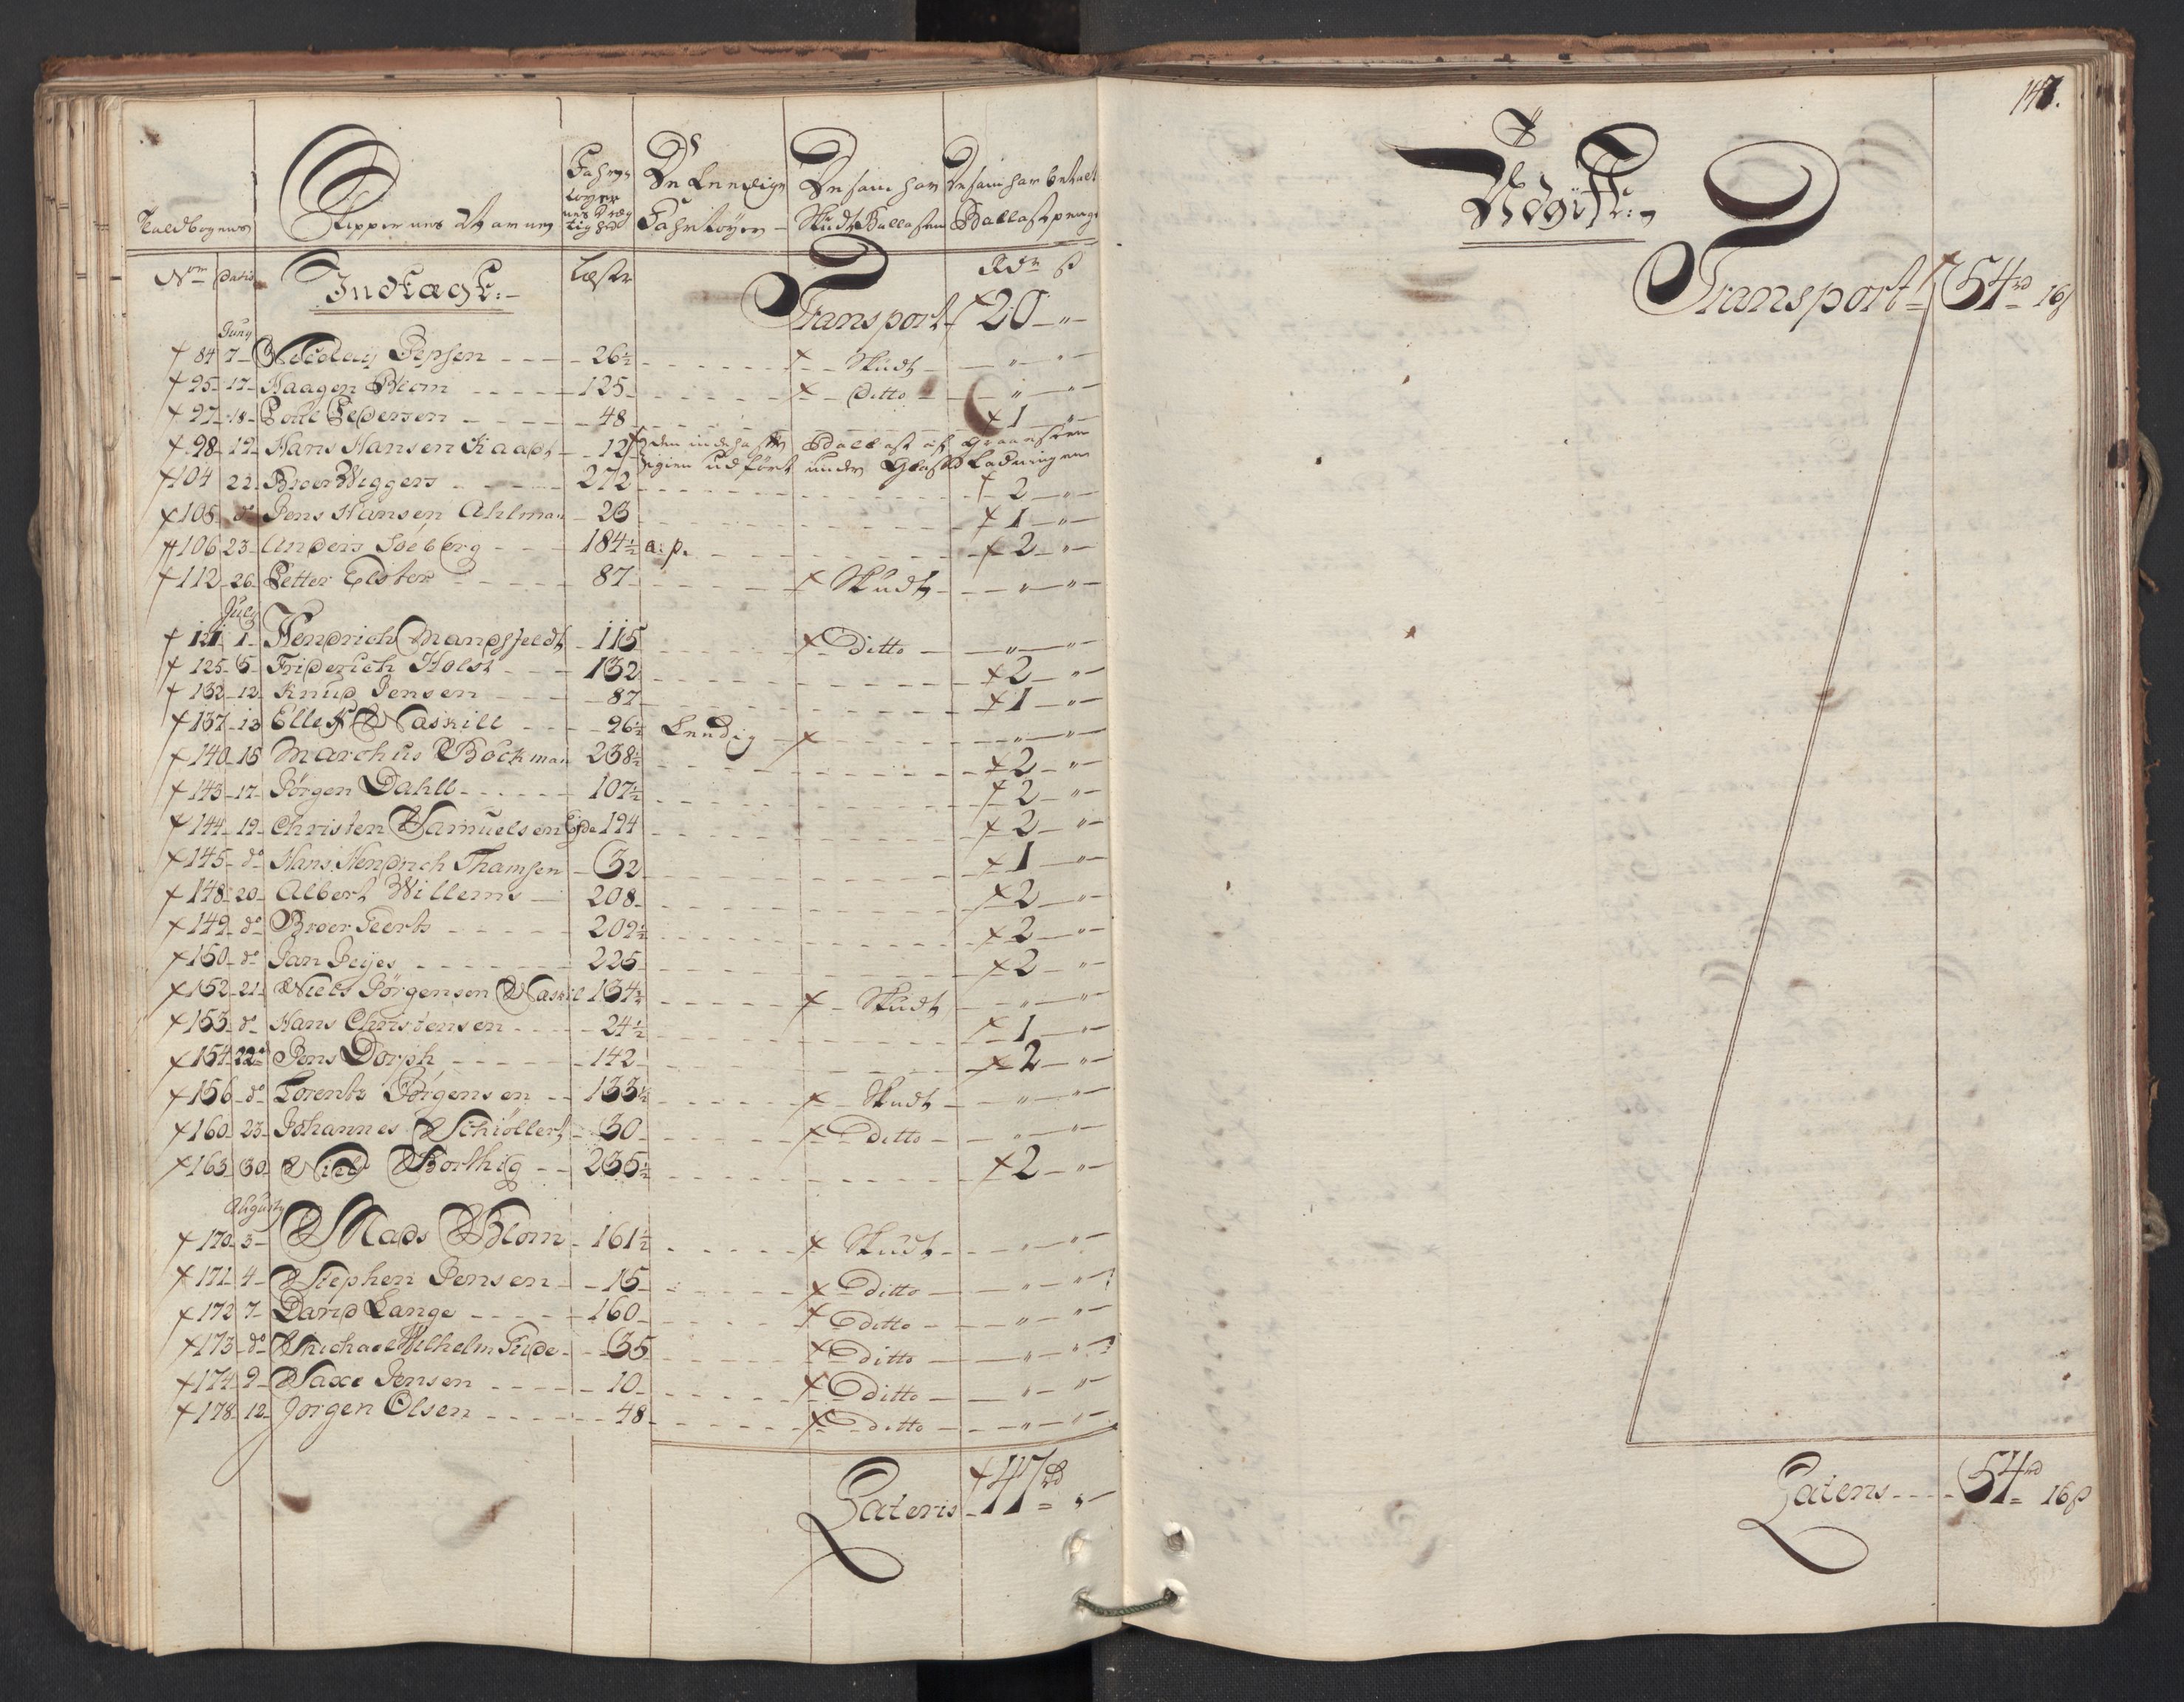 Toldbogens
Skippernes Navne
Fahrtøyernes Drægtighed
De Leedige Fahrtøyer
De som har Skudt Ballasten
De som har betalt Ballastpenge
Nom Dato Indtægt:
Læster
Rdr ß
Transport 20 - "
Juny
84 7 Nicolay Jepsen 26½ Skudt " "
95 17 Haagen Blom 125 Ditto " "
97 18 Poul Pedersen 48 1 "
98 19 Hans Hansen Kaadt 12 den indehafte Ballast af graasteen
igien udført under Glas Ladningen
104 22 Broer Wiggers 272 2 "
105 do Jens Hansen Ahlman 23 1 "
106 23 Anders Soeberg 184½ a: p. 2 "
112 26 Petter Elster 87 Skudt " "
July
121 1 Hendrich Mandsfeldt 115 Ditto " "
125 5 Friderich Holst 132 2 "
132 12 Knud Jensen 87 1 "
137 13 Ellef Naskill 96½ Leedig " "
140 15 Marchus Bockman 238½ 2 "
143 17 Jørgen Dahll 107½ 2 "
144 19 Christen Samuelsen Eyde 194 2 "
145 do Hans Hendrich Thamsen 32 1 "
148 20 Albert Willems 208 2 "
149 do Broer Geerts 209½ 2 "
150 do Jan Feijes 225 2 "
152 21 Niels Jørgensen Naskil 134½ Skudt " "
153 do Hans Christensen 24½ 1 "
154 22 Jens Dorph 142 2 "
156 do Lorentz Jørgensen 133½ Skudt " "
160 23 Johannes Schiøllert 30 Ditto " "
163 30 Niels Borthig 235½ 2 "
Augusty
170 3 Mads Blom 161½ Skudt " "
171 4 Stephen Jensen 15 Ditto " "
172 7 David Lange 160 Ditto " "
173 do Michael Wilhelm Gude 35 Ditto " "
174 9 Saxe Jensen 10 Ditto " "
178 12 Jørgen Olsen 48 Ditto " "
Lateris 47rd "
147.
Udgift:
Transport 54rd 16ß
Lateris 54rd 16ß